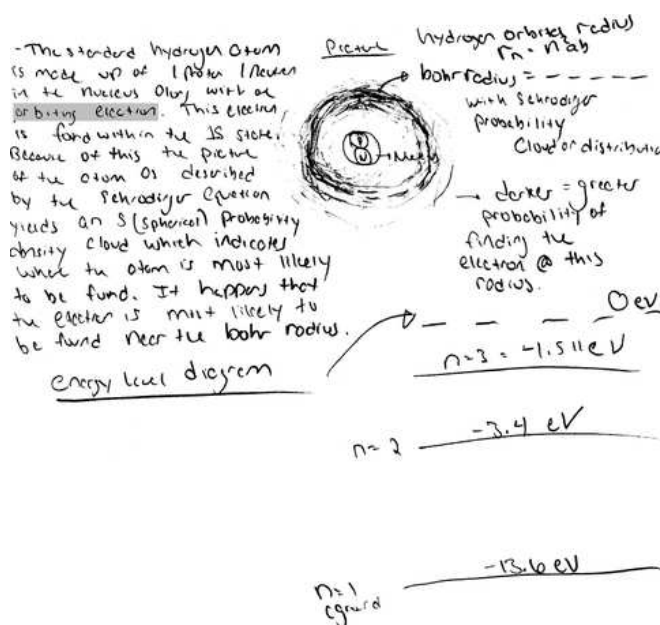 - The standard hydrogen atom
is made up of 1 proton 1 neutron
in the nucleus along with an
orbiting electron. This electron
is found within the 1S state.
Because of this the picture
of the atom as described
by the Schrodinger Equation
yields an S (spherical) probability
density cloud which indicates
where the atom is most likely
to be fund. It happens that
the electron is most likely to
be found near the bohr radius.
Picture
hydrogen orbites radius
rn = n²ab
bohr radius = – – – – – –
with Schrodinger
probability
Cloud or distributio
→ darker = greater
probability of
finding the
electron @ this
radius.
energy level diagram
0 eV
n=3 = -1.511 eV
n=2
-3.4 eV
-13.6 eV
n=1
ground